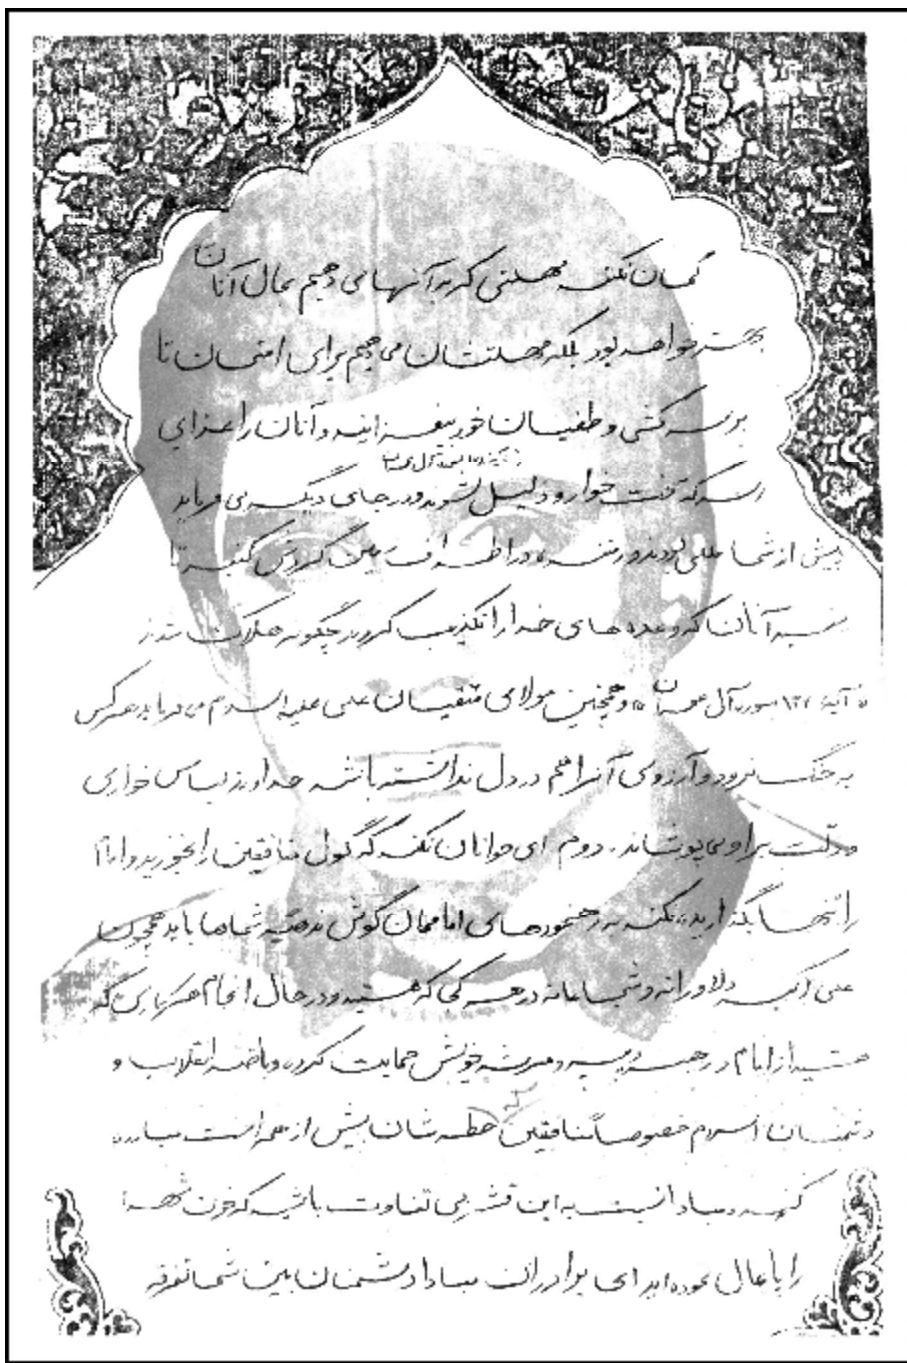 گمان نکنند مهلتی که به آنها می دهیم بحال آنان
بهتر خواهد بود بلکه مهلتشان می دهیم برای امتحان تا
بر سرکشی و طغیان خود بیفزایند و آنان را عذابی
رسد که سخت خوار و ذلیل شوند و در جای دیگر می فرماید
پیش از شما مللی بودند و رفتند، در اطراف زمین گردش کنید تا
ببینید آنان که وعده های خدا را تکذیب کردند چگونه هلاک شدند
آیه ۱۳۷ سوره آل عمران و همچنین مولای متقیان علی علیه السلام می فرماید هر کس
به جنگ نرود و آرزوی آنرا هم در دل نداشته باشد خداوند لباس خواری
و ذلت بر او می پوشاند. دوم ای جوانان نکند که گول منافقین را بخورید و امام
را تنها بگذارید، نکند به رهنمودهای امامان گوش ندهید شماها باید همچون
علی اکبر دلاورانه و شجاعانه در هر کجا که هستید و در حال انجام هر کاری که
هستید از امام و رهبر خویش حمایت کرده و با ضد انقلاب و
دشمنان اسلام خصوصاً منافقین که خطرشان بیش از همه است مبارزه
کنید و مبادا نسبت به این قشر بی تفاوت باشید که خون شهدا
را پایمال نموده اید ای برادران مبادا دشمنان بین شما تفرقه